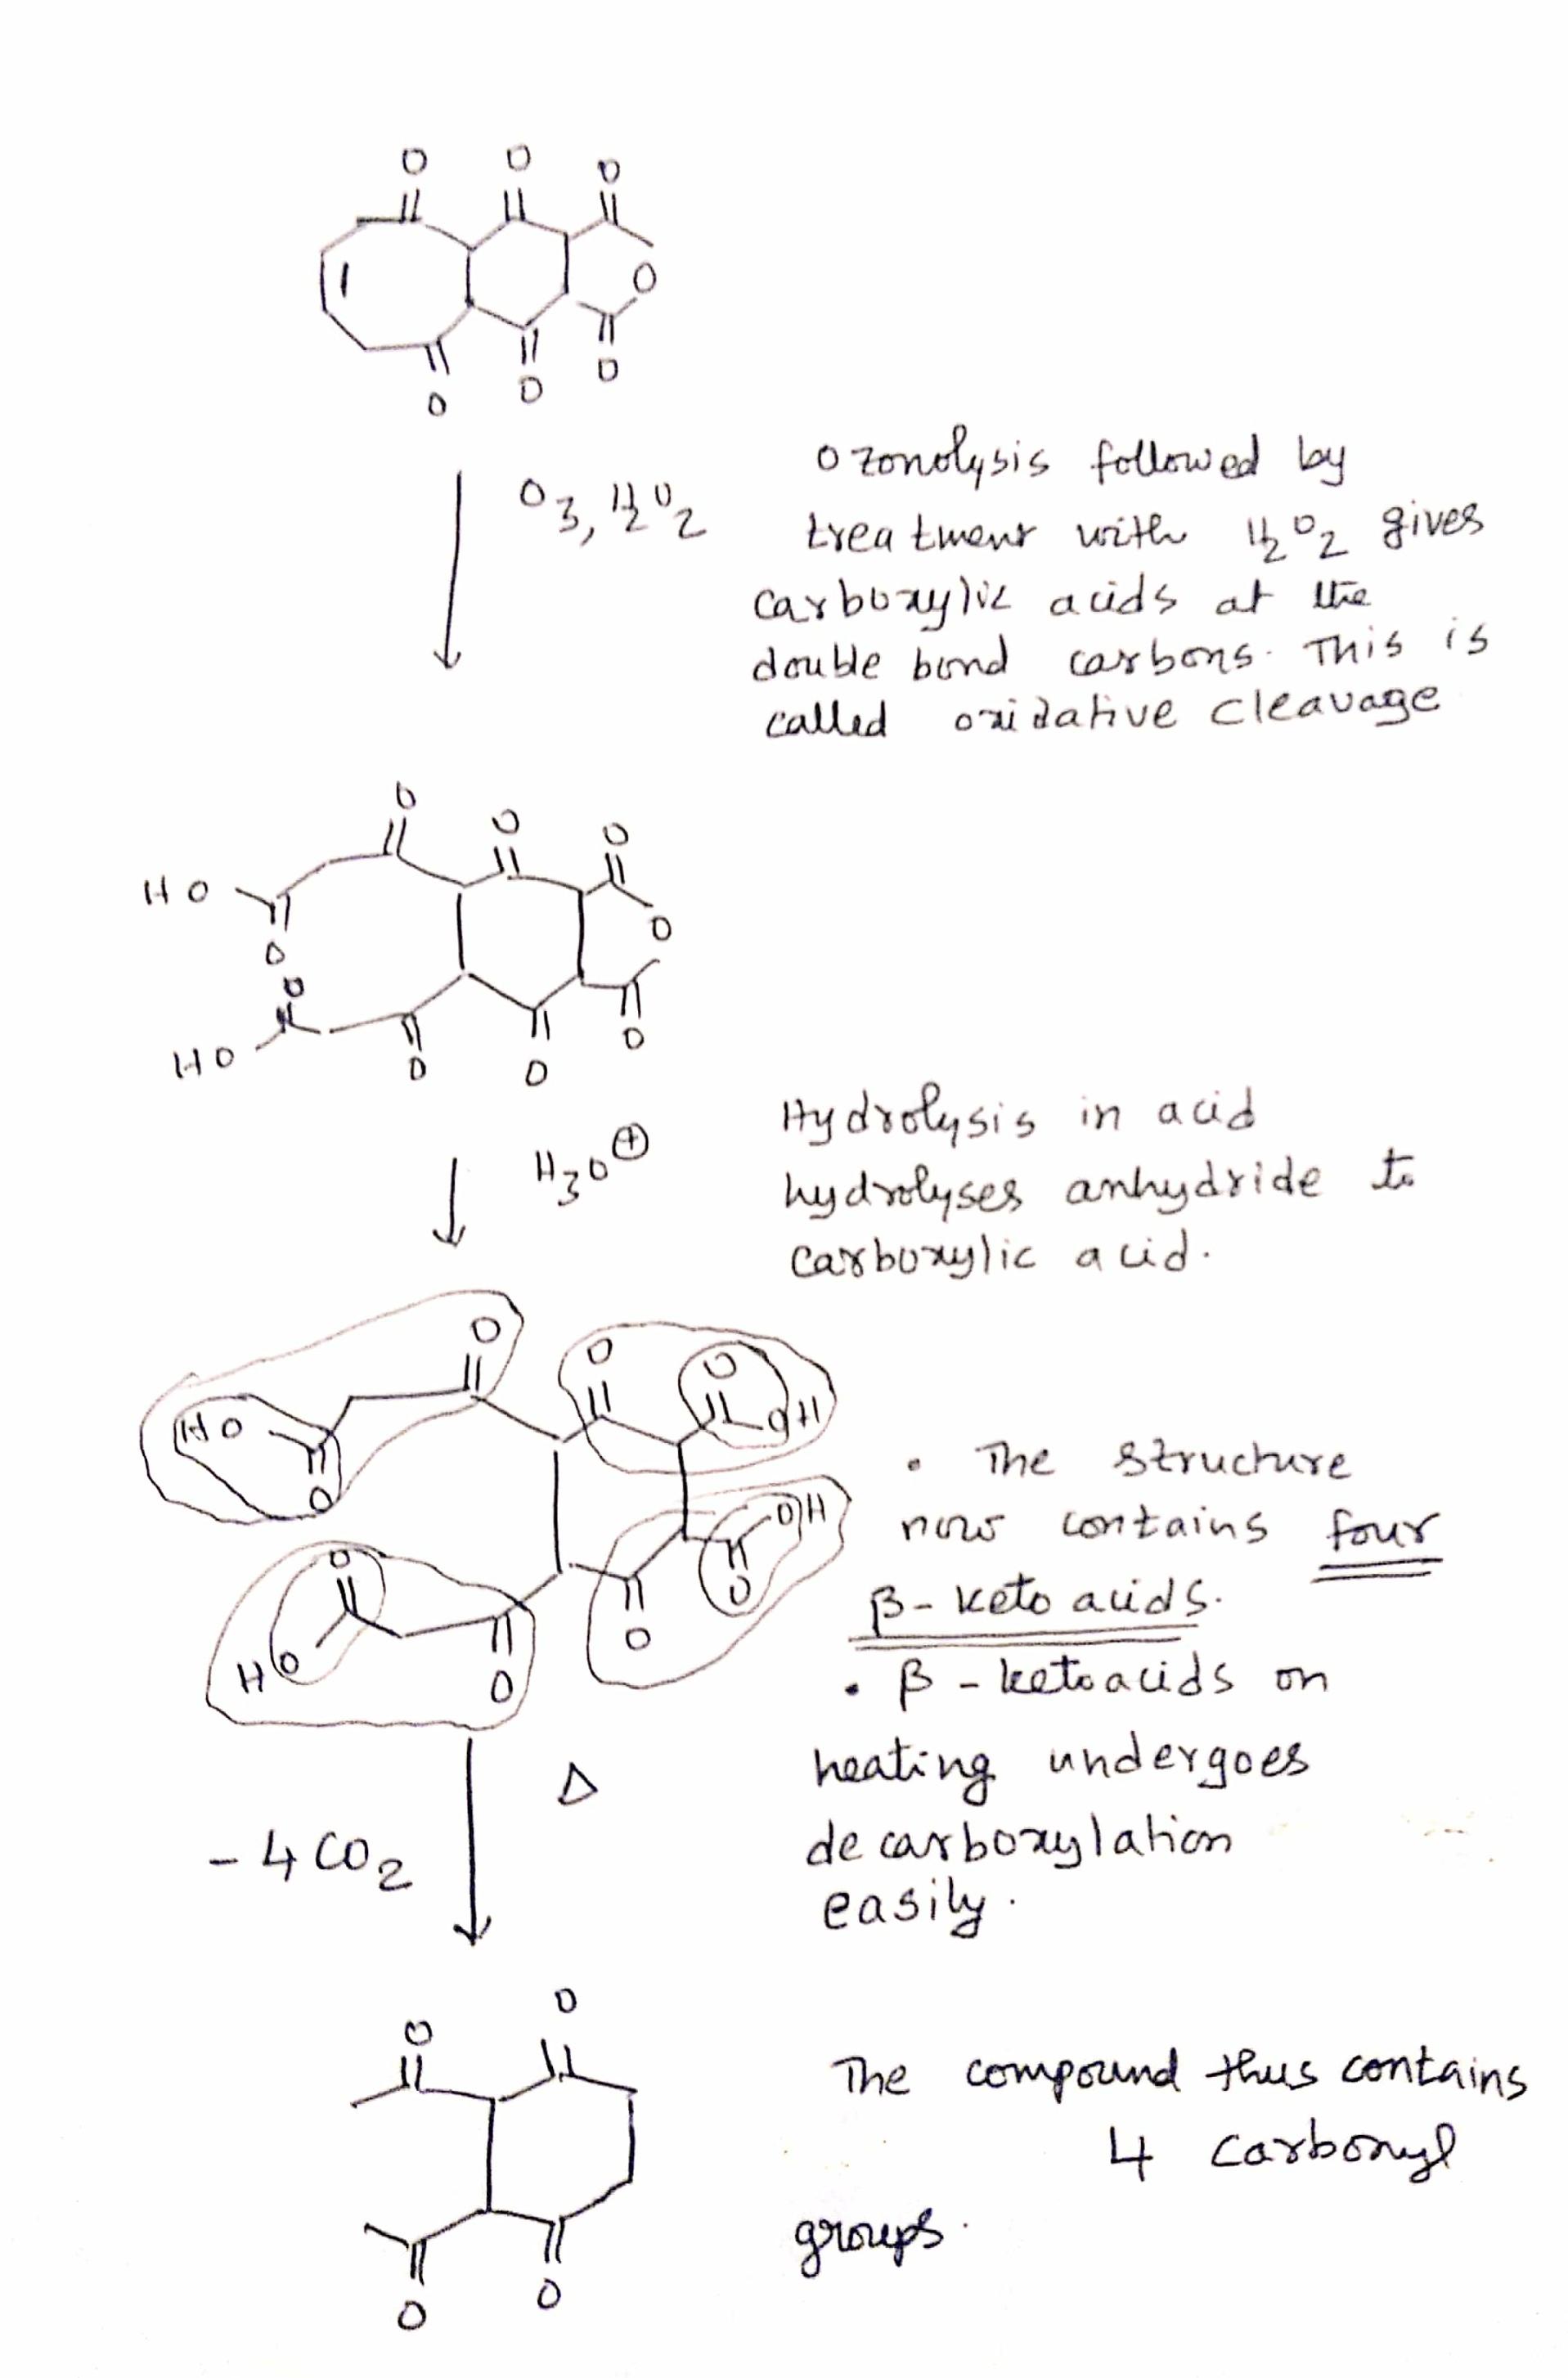 O O O
O
O O O
O3, H2O2
Ozonolysis followed by
treatment with H2O2 gives
carboxylic acids at the
double bond carbons. This is
called oxidative cleavage
O O O
HO O
O
O
HO O O O
H3O⊕
Hydrolysis in acid
hydrolyses anhydride to
carboxylic acid.
O O O
HO OH
O
O OH
O
HO O O
• The structure
now contains four
β- keto acids.
• β - ketoacids on
heating undergoes
decarboxylation
easily.
Δ
- 4 CO2
O O
O O
The compound thus contains
4 carbonyl
groups.